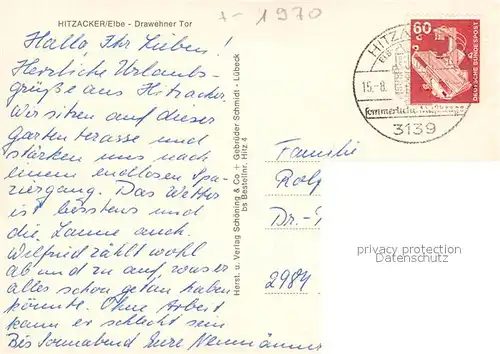 HITZACKER/Elbe - Drawehner Tor
1970
Hallo, Ihr Lieben!
Herzliche Urlaubs-
grüße aus Hitzacker.
Wir sitzen auf dieser
Gartenterasse und
stärken uns nach
einem endlosen Spa-
ziergang. Das Wetter
ist bestens und
die Laune auch.
Wilfried zählt wohl
ab und zu auf, was er
alles schon getan haben
könnte. Ohne Arbeit
kann er schlecht sein
Bis Sonnabend Eure
Herst. u. Verlag Schöning & Co · Gebrüder Schmidt - Lübeck
bs Bestellnr. Hitz 4
HITZ
15.-8.
Sommerliche
3139
60
DEUTSCHE BUNDESPOST
Familie
Rolf
Dr.-
2984
privacy protection
AnsichtskartenVersand.com